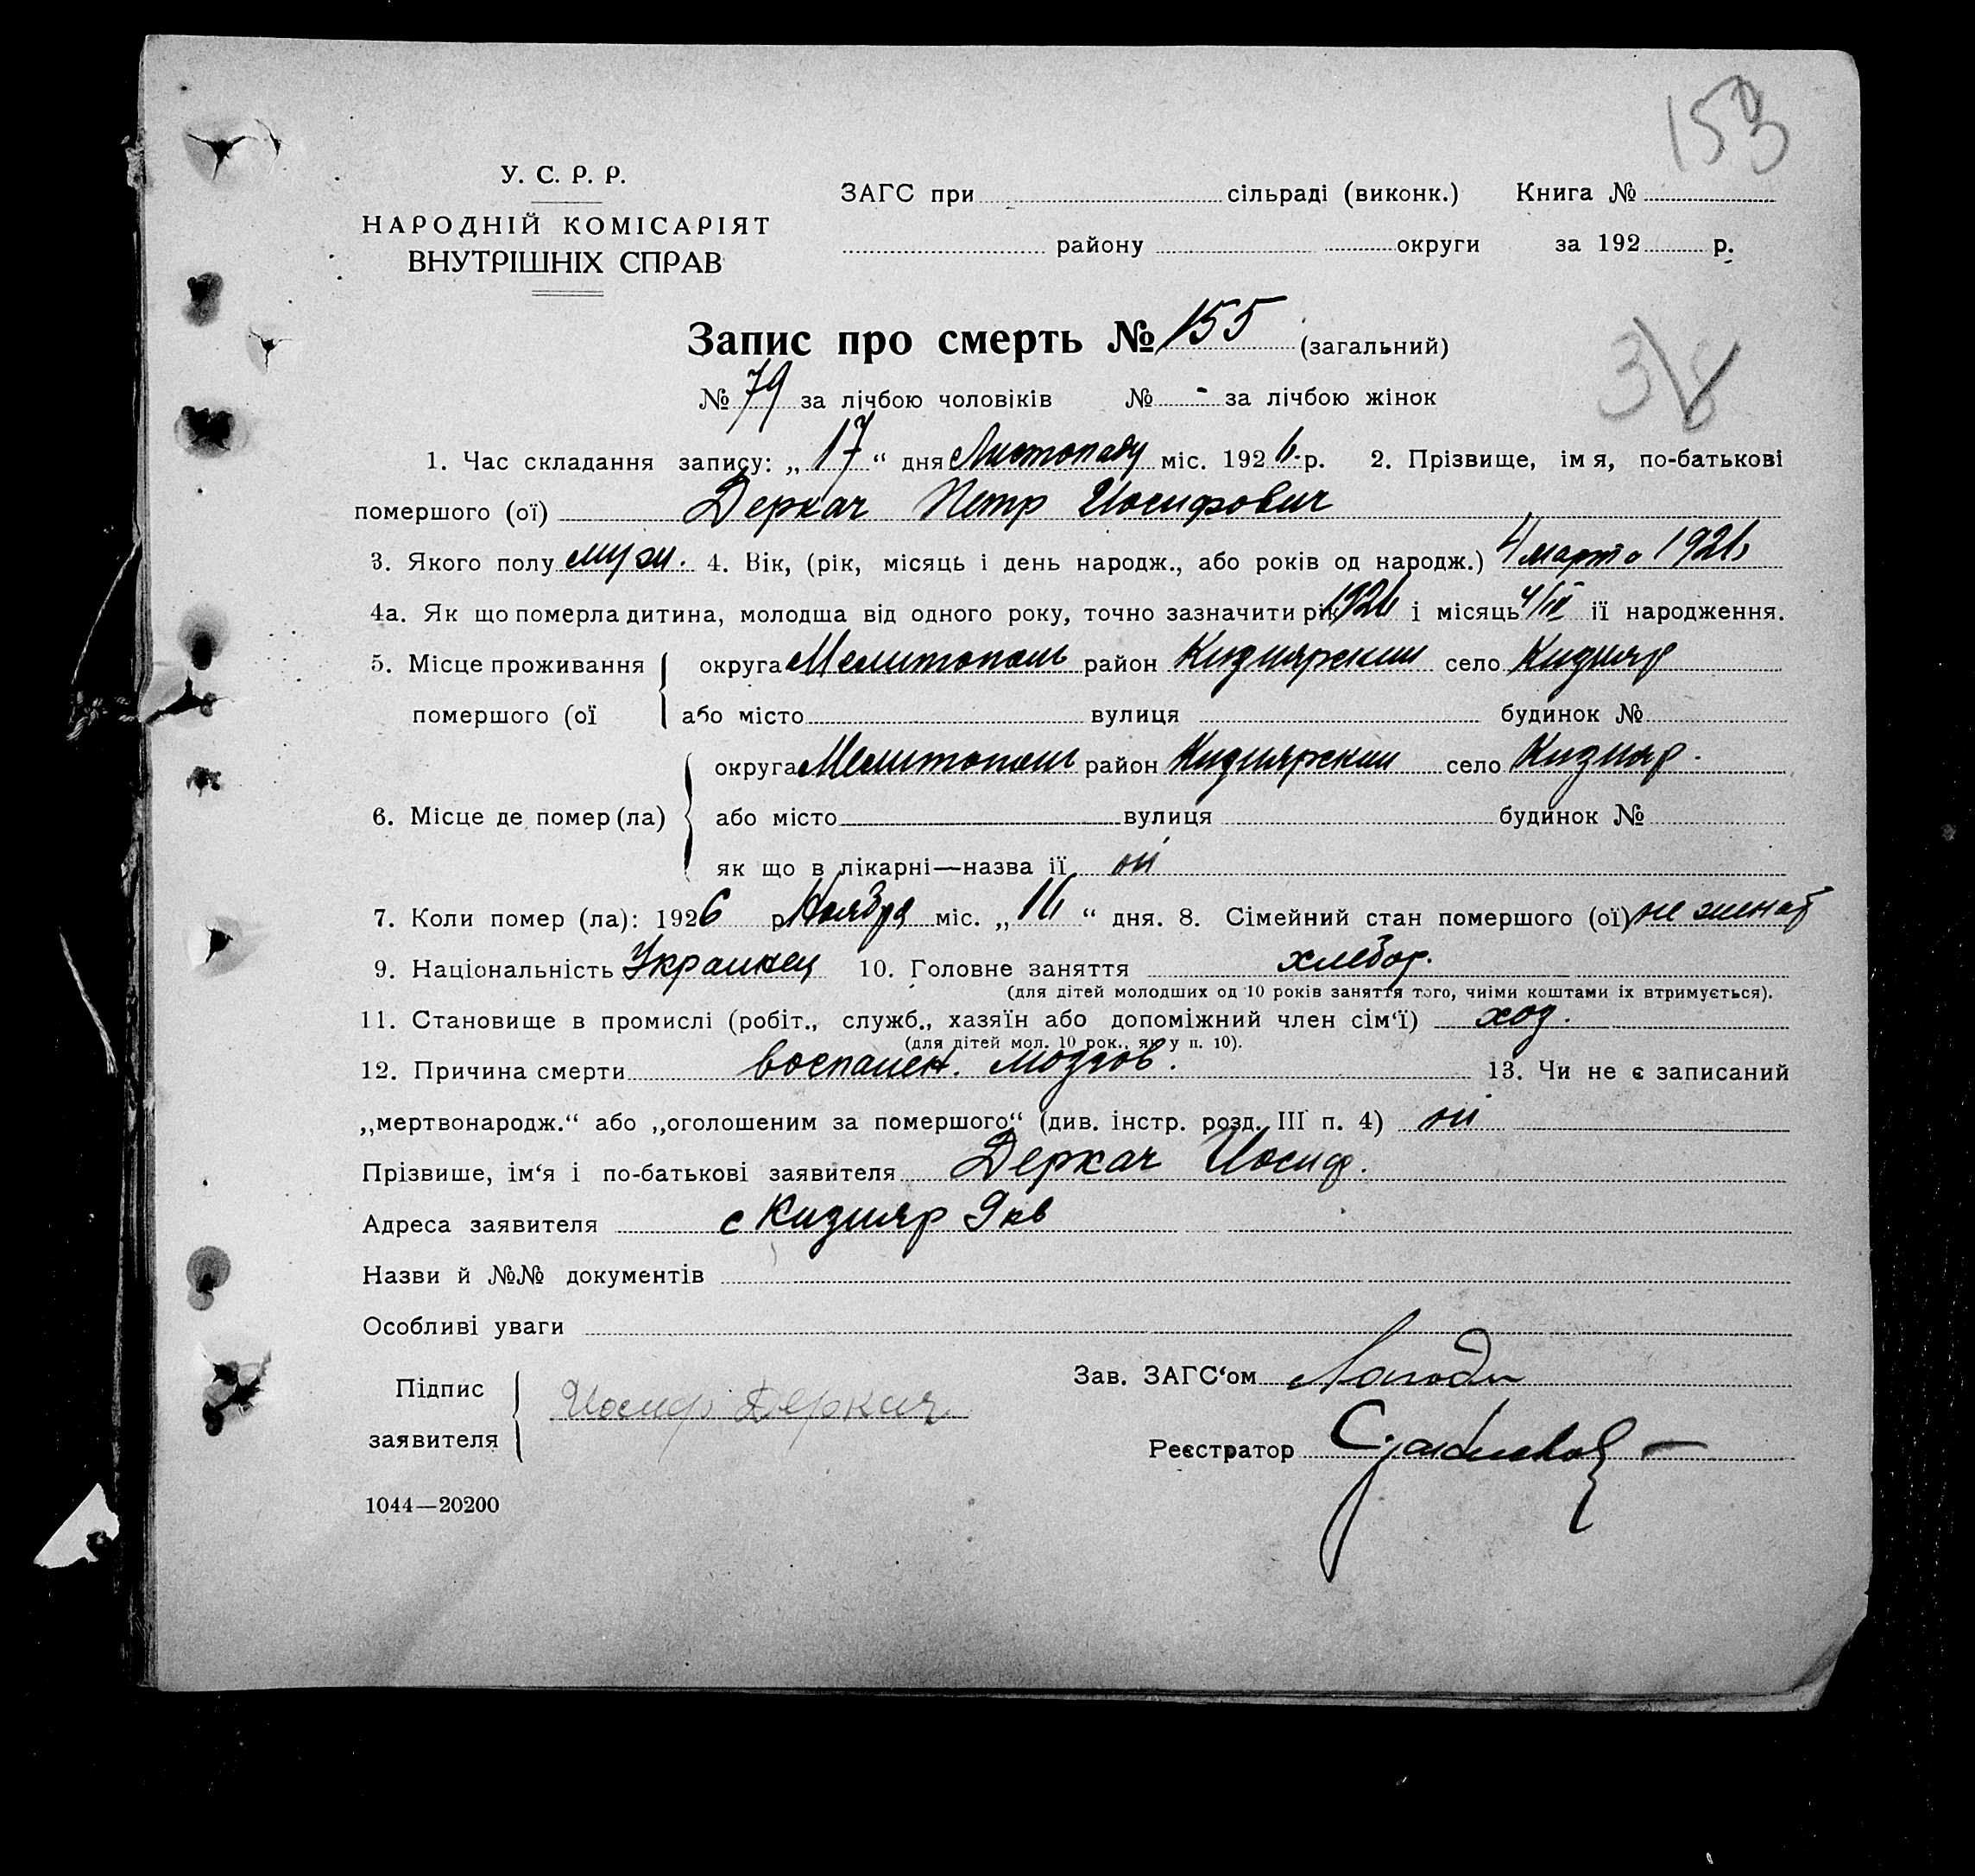 153
У. С. Р. Р.
НАРОДНІЙ КОМІСАРІЯТ
ВНУТРІШНІХ СПРАВ
ЗАГС при сільраді (виконк.) Книга №
району округи за 192 р.
Запис про смерть № 155 (загальний)
38
№ 79 за лічбою чоловіків № - за лічбою жінок
1. Час складання запису: „ 17 “ дня Листопаду міс. 1926 р. 2. Прізвище, імя, по-батькові
помершого (ої) Деркач Петр Иосифович
3. Якого полу муж. 4. Вік, (рік, місяць і день народж., або років од народж.) 4 марта 1926
4а. Як що померла дитина, молодша від одного року, точно зазначити рік 1926 і місяць 4/III її народження.
5. Місце проживання округа Мелитополь район Кизиярский село Кизияр
помершого (ої або місто вулиця будинок №
округа Мелитополь район Кизиярский село Кизияр.
6. Місце де помер (ла) або місто вулиця будинок №
як що в лікарні—назва її ні
7. Коли помер (ла): 1926 р Ноября міс. „ 16 “ дня. 8. Сімейний стан помершого (ої) не женат
9. Національність Украинец 10. Головне заняття хлебор.
(для дітей молодших од 10 років заняття того, чиїми коштами їх втримується).
11. Становище в промислі (робіт., служб., хазяїн або допоміжний член сім‘ї) хоз.
(для дітей мол. 10 рок., як у п. 10).
12. Причина смерти воспален. мозгов. 13. Чи не є записаний
„мертвонародж.“ або „оголошеним за помершого“ (див. інстр. розд. III п. 4) ні
Прізвише, ім‘я і по-батькові заявителя Деркач Иосиф.
Адреса заявителя с Кизияр 9 кв
Назви й №№ документів
Особливі уваги
Зав. ЗАГС‘ом
Підпис Иосиф Деркач
заявителя
Реєстратор
1044—20200